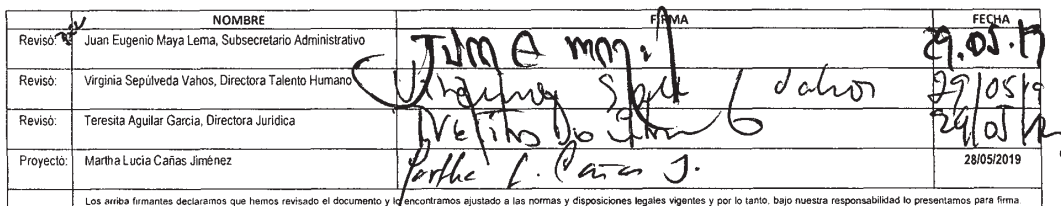 NOMBRE FIRMA FECHA
Revisó: Juan Eugenio Maya Lema, Subsecretario Administrativo 29.05.19
Revisó: Virginia Sepúlveda Vahos, Directora Talento Humano 29/05/19
Revisó: Teresita Aguilar García, Directora Jurídica 29/05/19
Proyectó: Martha Lucía Cañas Jiménez Martha L. Cañas J. 28/05/2019
Los arriba firmantes declaramos que hemos revisado el documento y lo encontramos ajustado a las normas y disposiciones legales vigentes y por lo tanto, bajo nuestra responsabilidad lo presentamos para firma.